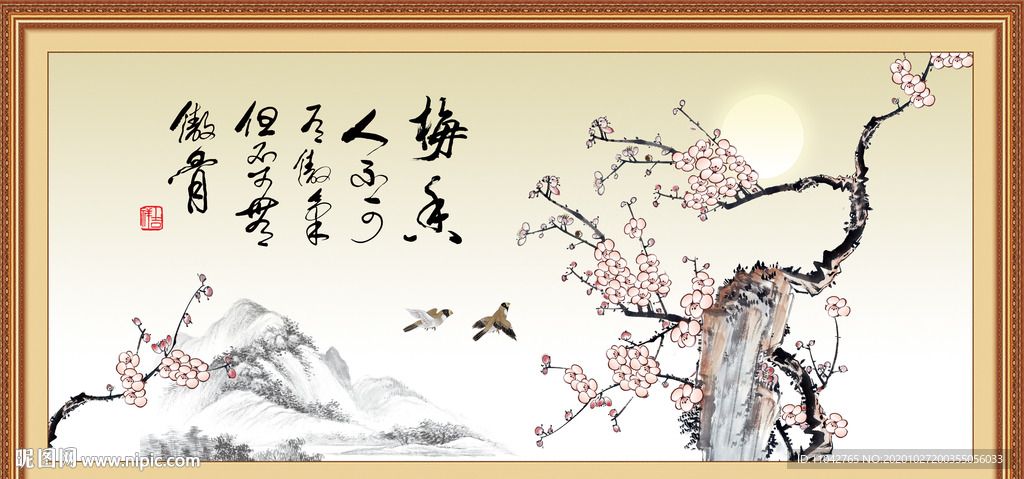 梅香
人不可
有傲气
但不可无
傲骨
昵图网 www.nipic.com
ID:11842765 NO:20201027200355056033